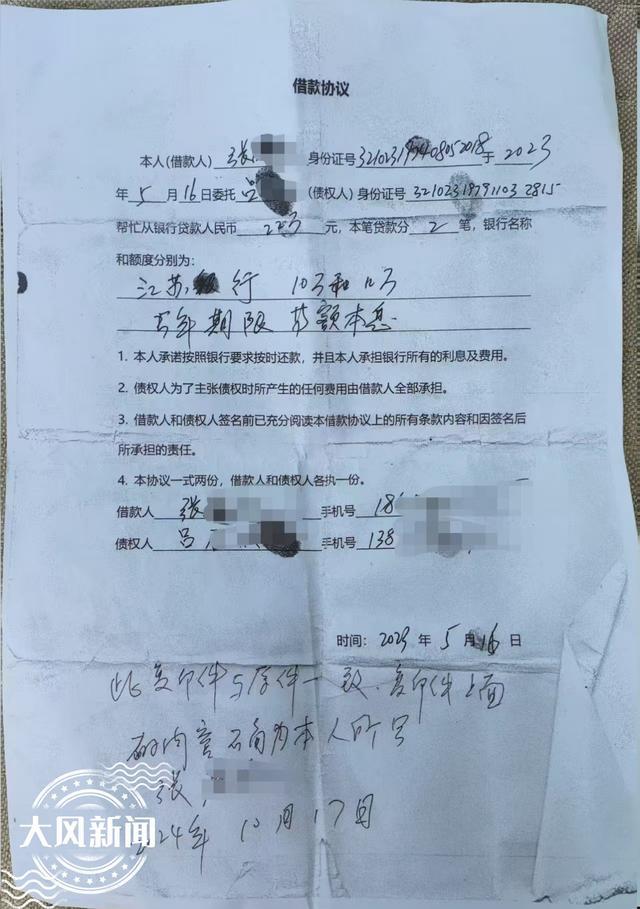 借款协议
本人(借款人) 张 身份证号 于 2023
年 5 月 16 日委托 吕 (债权人) 身份证号
帮忙从银行贷款人民币 22万 元，本笔贷款分 2 笔，银行名称
和额度分别为：
江苏 银行 10万和12万
五年期限 等额本息
1. 本人承诺按照银行要求按时还款，并且本人承担银行所有的利息及费用。
2. 债权人为了主张债权时所产生的任何费用由借款人全部承担。
3. 借款人和债权人签名前已充分阅读本借款协议上的所有条款内容和因签名后
所承担的责任。
4. 本协议一式两份，借款人和债权人各执一份。
借款人 张 手机号 18
债权人 吕 手机号 138
时间： 2023 年 5 月 16 日
此复印件与原件一致.复印件上面
的内容 为本人所写
张
2024年 10月17日
大风新闻